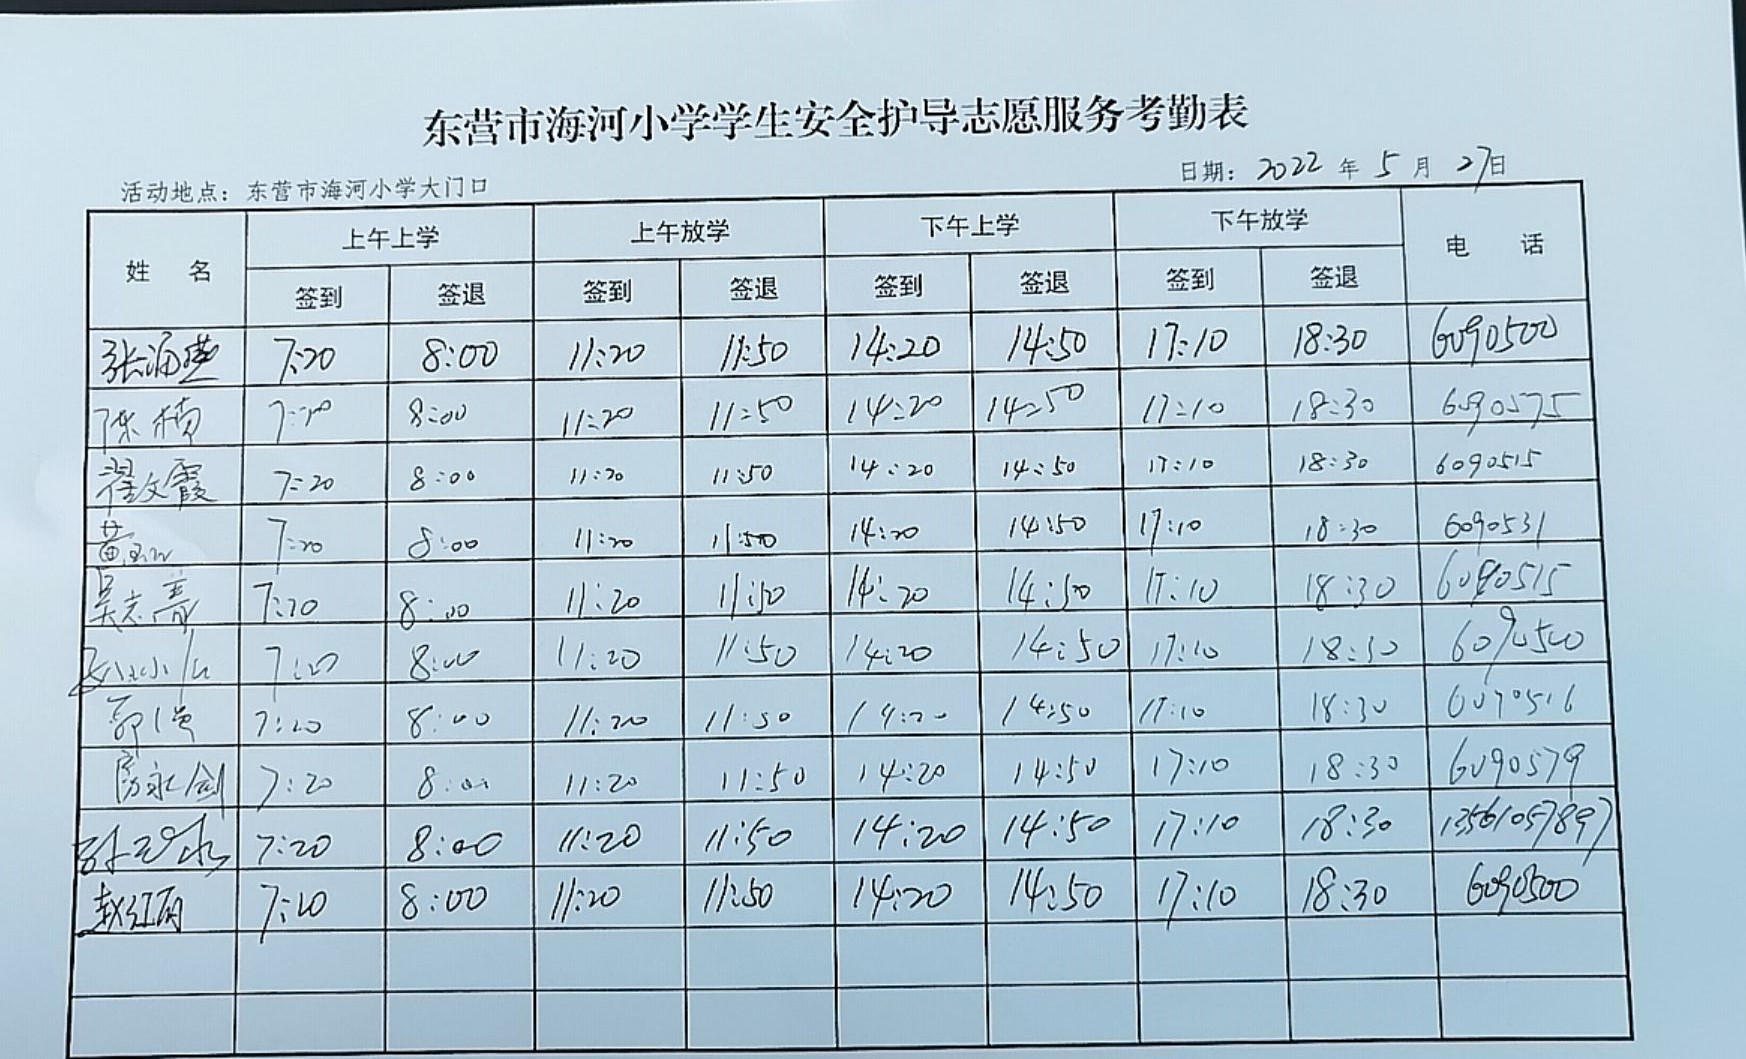 东营市海河小学学生安全护导志愿服务考勤表
活动地点：东营市海河小学大门口 日期：2022年5月27日
姓 名 上午上学 上午放学 下午上学 下午放学 电 话
签到 签退 签到 签退 签到 签退 签到 签退
张海燕 7:20 8:00 11:20 11:50 14:20 14:50 17:10 18:30 6090500
陈楠 7:20 8:00 11:20 11:50 14:20 14:50 17:10 18:30 6090575
翟文霞 7:20 8:00 11:20 11:50 14:20 14:50 17:10 18:30 6090515
黄 7:20 8:00 11:20 11:50 14:20 14:50 17:10 18:30 6090531
吴志青 7:20 8:00 11:20 11:50 14:20 14:50 17:10 18:30 6090515
7:20 8:00 11:20 11:50 14:20 14:50 17:10 18:30 6090500
郭 7:20 8:00 11:20 11:50 14:20 14:50 17:10 18:30 6090516
房永剑 7:20 8:00 11:20 11:50 14:20 14:50 17:10 18:30 6090579
7:20 8:00 11:20 11:50 14:20 14:50 17:10 18:30 13561057897
赵红雨 7:20 8:00 11:20 11:50 14:20 14:50 17:10 18:30 6090500